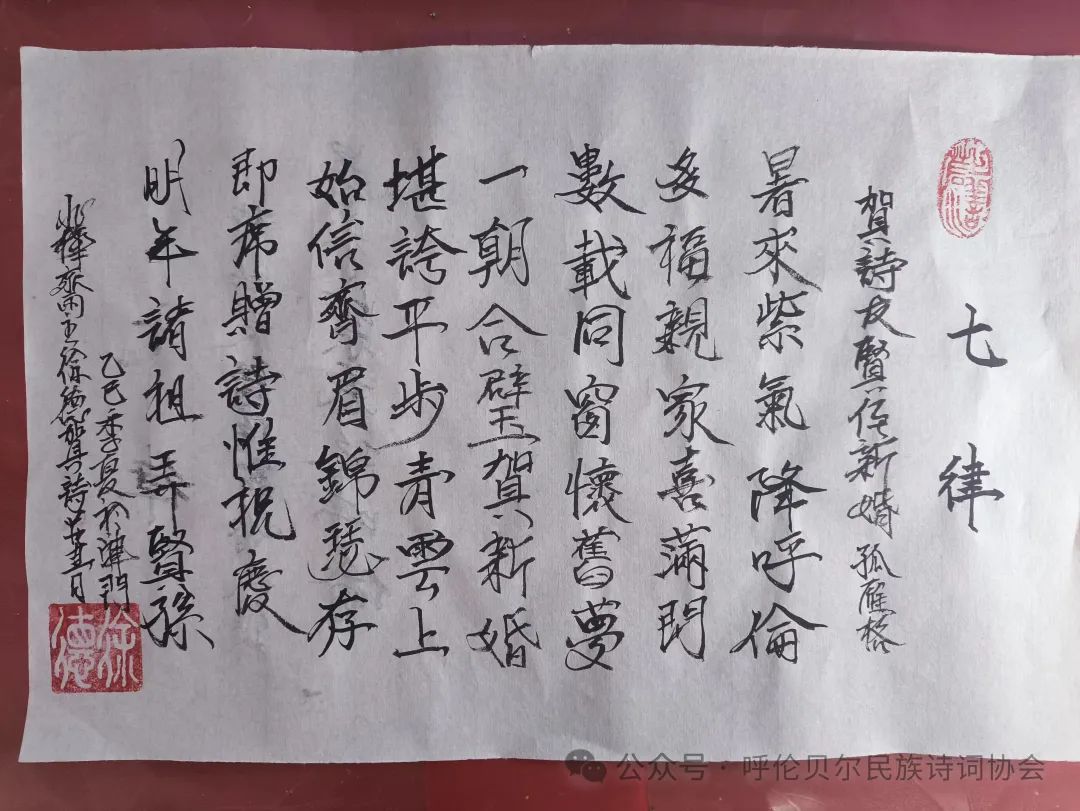 七律
賀詩友賢侄新婚 孤雁格
暑來紫氣降呼倫
多福親家喜滿門
數載同窗懷舊夢
一朝合璧賀新婚
堪誇平步青雲上
始信齊眉錦瑟存
即席贈詩惟祝慶
明年請祖弄賢孫
乙巳季夏於津門
齋主徐德賀詩
徐德
公众号·呼伦贝尔民族诗词协会